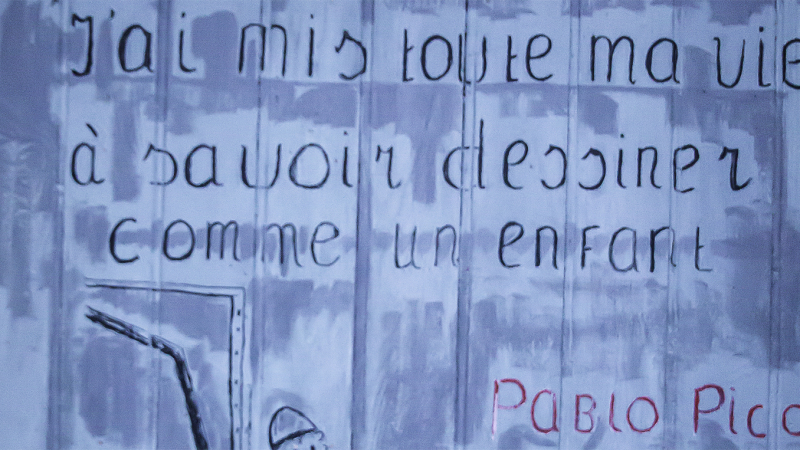 J'ai mis toute ma vie
à savoir dessiner
comme un enfant
Pablo Pica